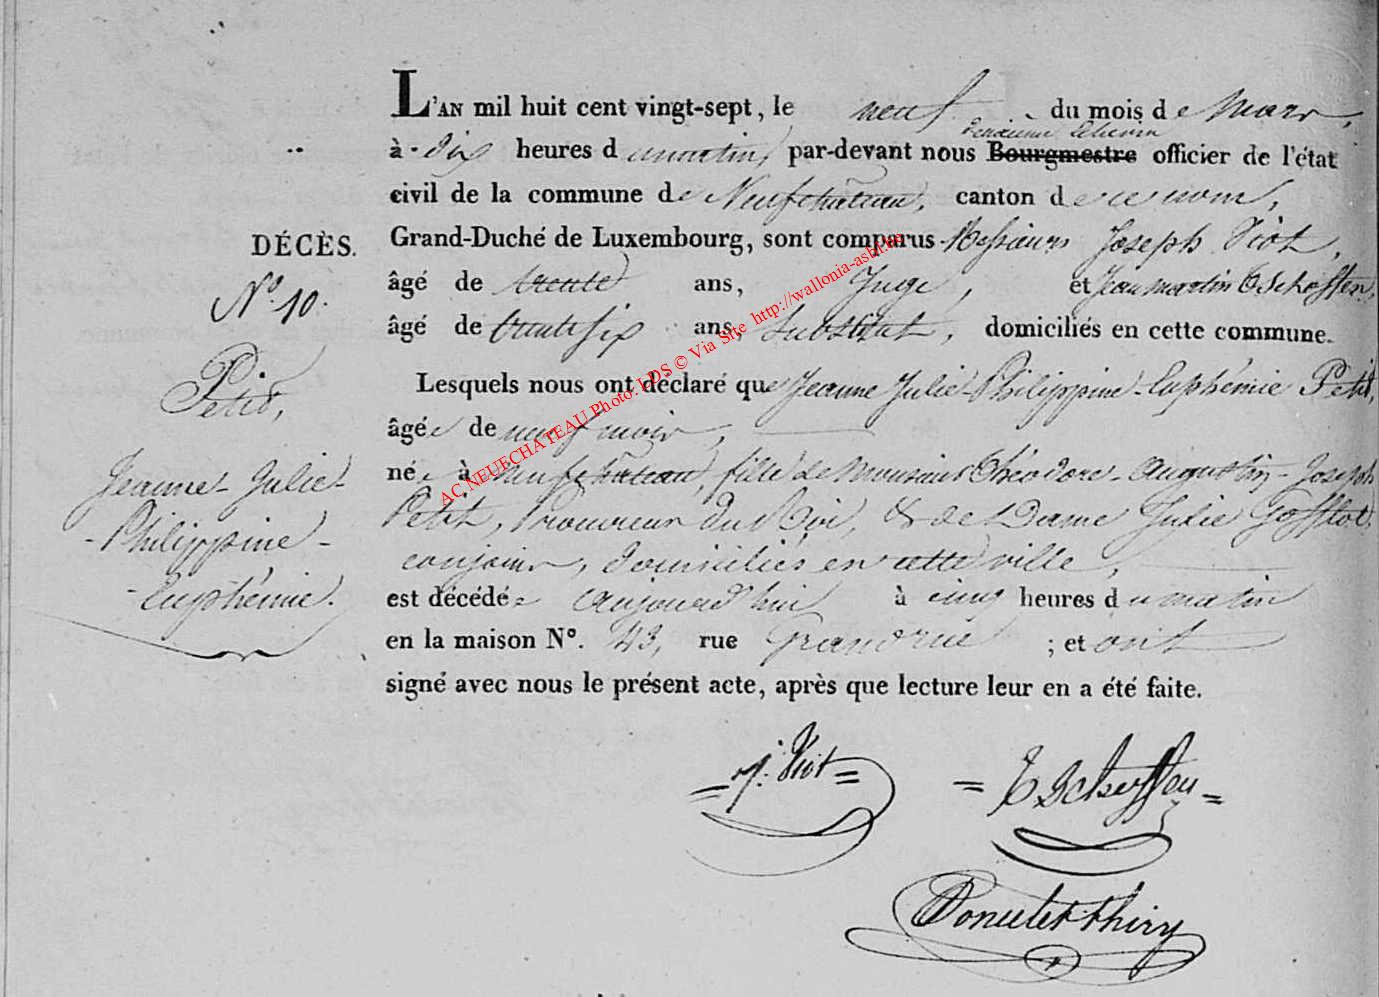 L'AN mil huit cent vingt-sept, le neuf du mois de Mars,
Echevin
à dix heures du matin, par-devant nous Bourgmestre officier de l'état
civil de la commune de Neufchateau, canton de ce nom,
DÉCÈS.
Grand-Duché de Luxembourg, sont comparus Messieurs Joseph Viot,
N.° 10.
âgé de trente ans, Juge, et Jean martin Tschoffen,
âgé de trente six ans, Substitut, domiciliés en cette commune.
Petit,
Jeanne-Julie-
-Philippine-
-Euphémie.
Lesquels nous ont déclaré que Jeanne Julie-Philippine-Euphémie Petit,
âgée de neuf mois,
née à Neufchateau, fille de Monsieur Théodore-Augustin-Joseph
Petit, Procureur du Roi, & de Dame Julie Gofflot
conjoins, domiciliés en cette ville,
est décédée aujourd'hui à cinq heures du matin
en la maison N°. 43, rue Grand rue ; et ont
signé avec nous le présent acte, après que lecture leur en a été faite.
J. Viot
Tschoffen
Poncelet Thiry
AC NEUFCHATEAU Photo. LDS © Via Site http://wallonia-asbl.be